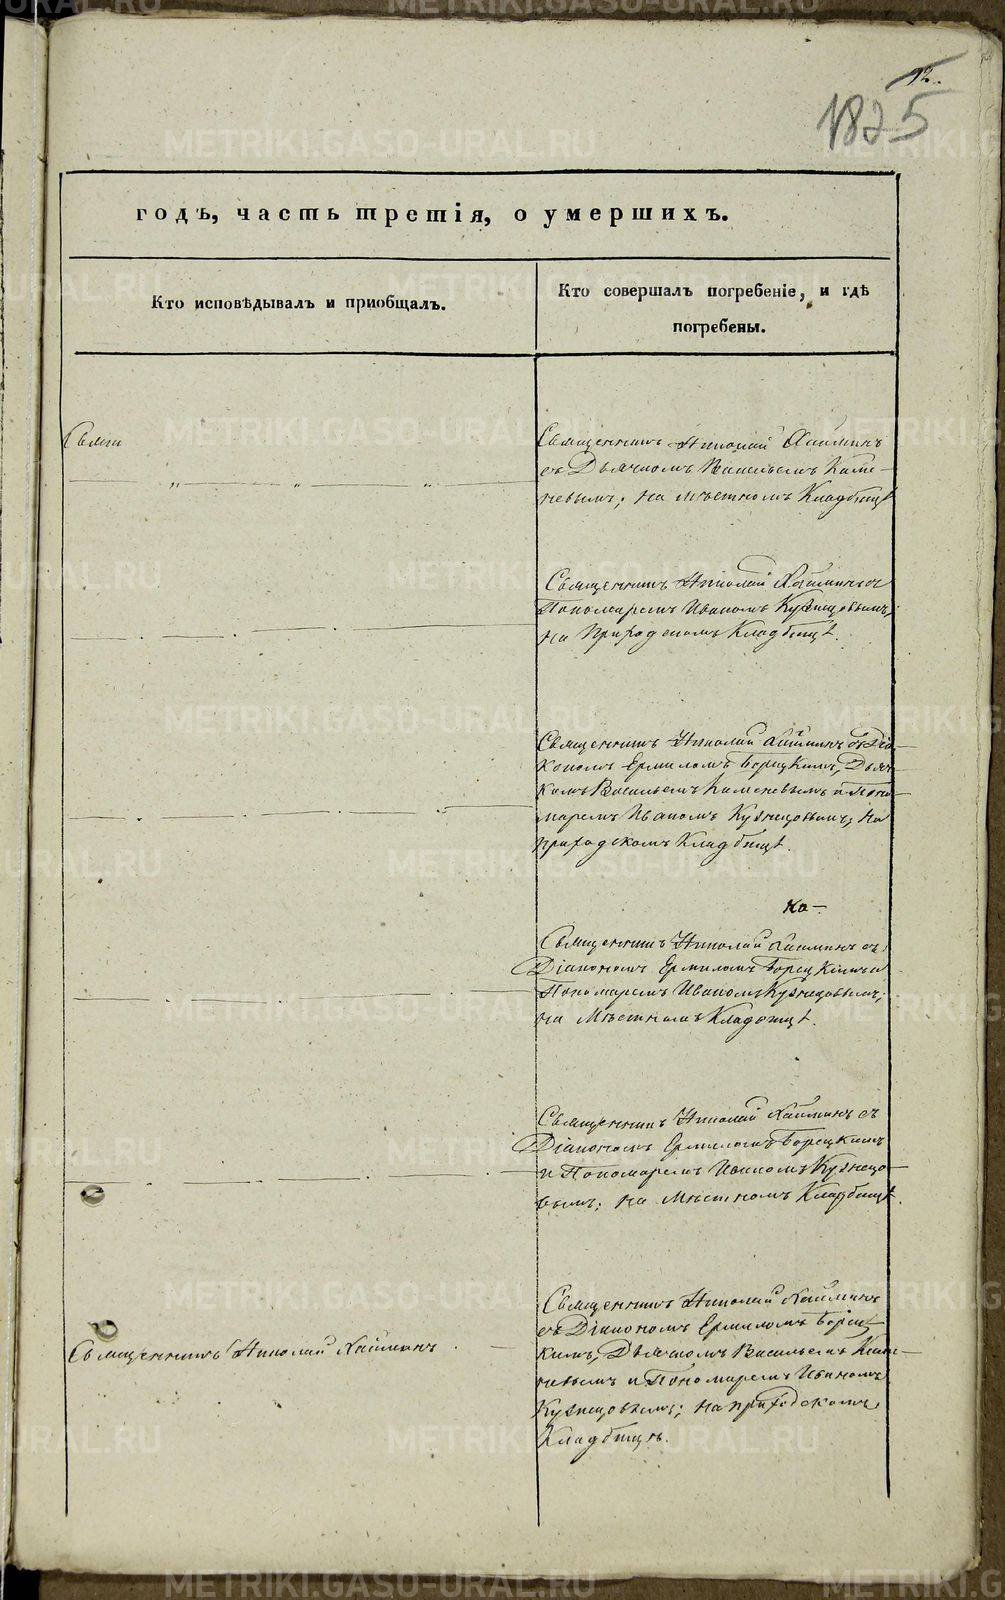 92.
1825
годъ, часть третія, о умершихъ.
Кто исповѣдывалъ и пріобщалъ.
Кто совершалъ погребеніе, и гдѣ
погребены.
Священникъ Николай
съ Дьячкомъ Васильемъ Каме-
невымъ; на мѣстномъ Кладбищѣ
Священникъ Николай Хайминъ съ
Пономаремъ Иваномъ Кузнецовымъ;
на Приходскомъ Кладбищѣ.
Священникъ Николай Хайминъ съ Діа-
кономъ Ермиломъ Борецкимъ, Дьяч-
комъ Васильемъ Каменевымъ и Поно-
маремъ Иваномъ Кузнецовымъ; на
приходскомъ Кладбищѣ.
ка-
Священникъ Николай Хайминъ съ
Діакономъ Ермиломъ Борецкимъ и
Пономаремъ Иваномъ Кузнецовымъ;
на Мѣстномъ Кладбищѣ.
Священникъ Николай Хайминъ съ
Діакономъ Ермиломъ Борецкимъ
и Пономаремъ Иваномъ Кузнецо-
вымъ; на Мѣстномъ Кладбищѣ.
Священникъ Николай Хайминъ
Священникъ Николай Хайминъ
съ Діакономъ Ермиломъ Борец-
кимъ, Дьячкомъ Васильемъ Каме-
невымъ и Пономаремъ Иваномъ
Кузнецовымъ; на приходскомъ
Кладбищѣ.
METRIKI.GASO-URAL.RU